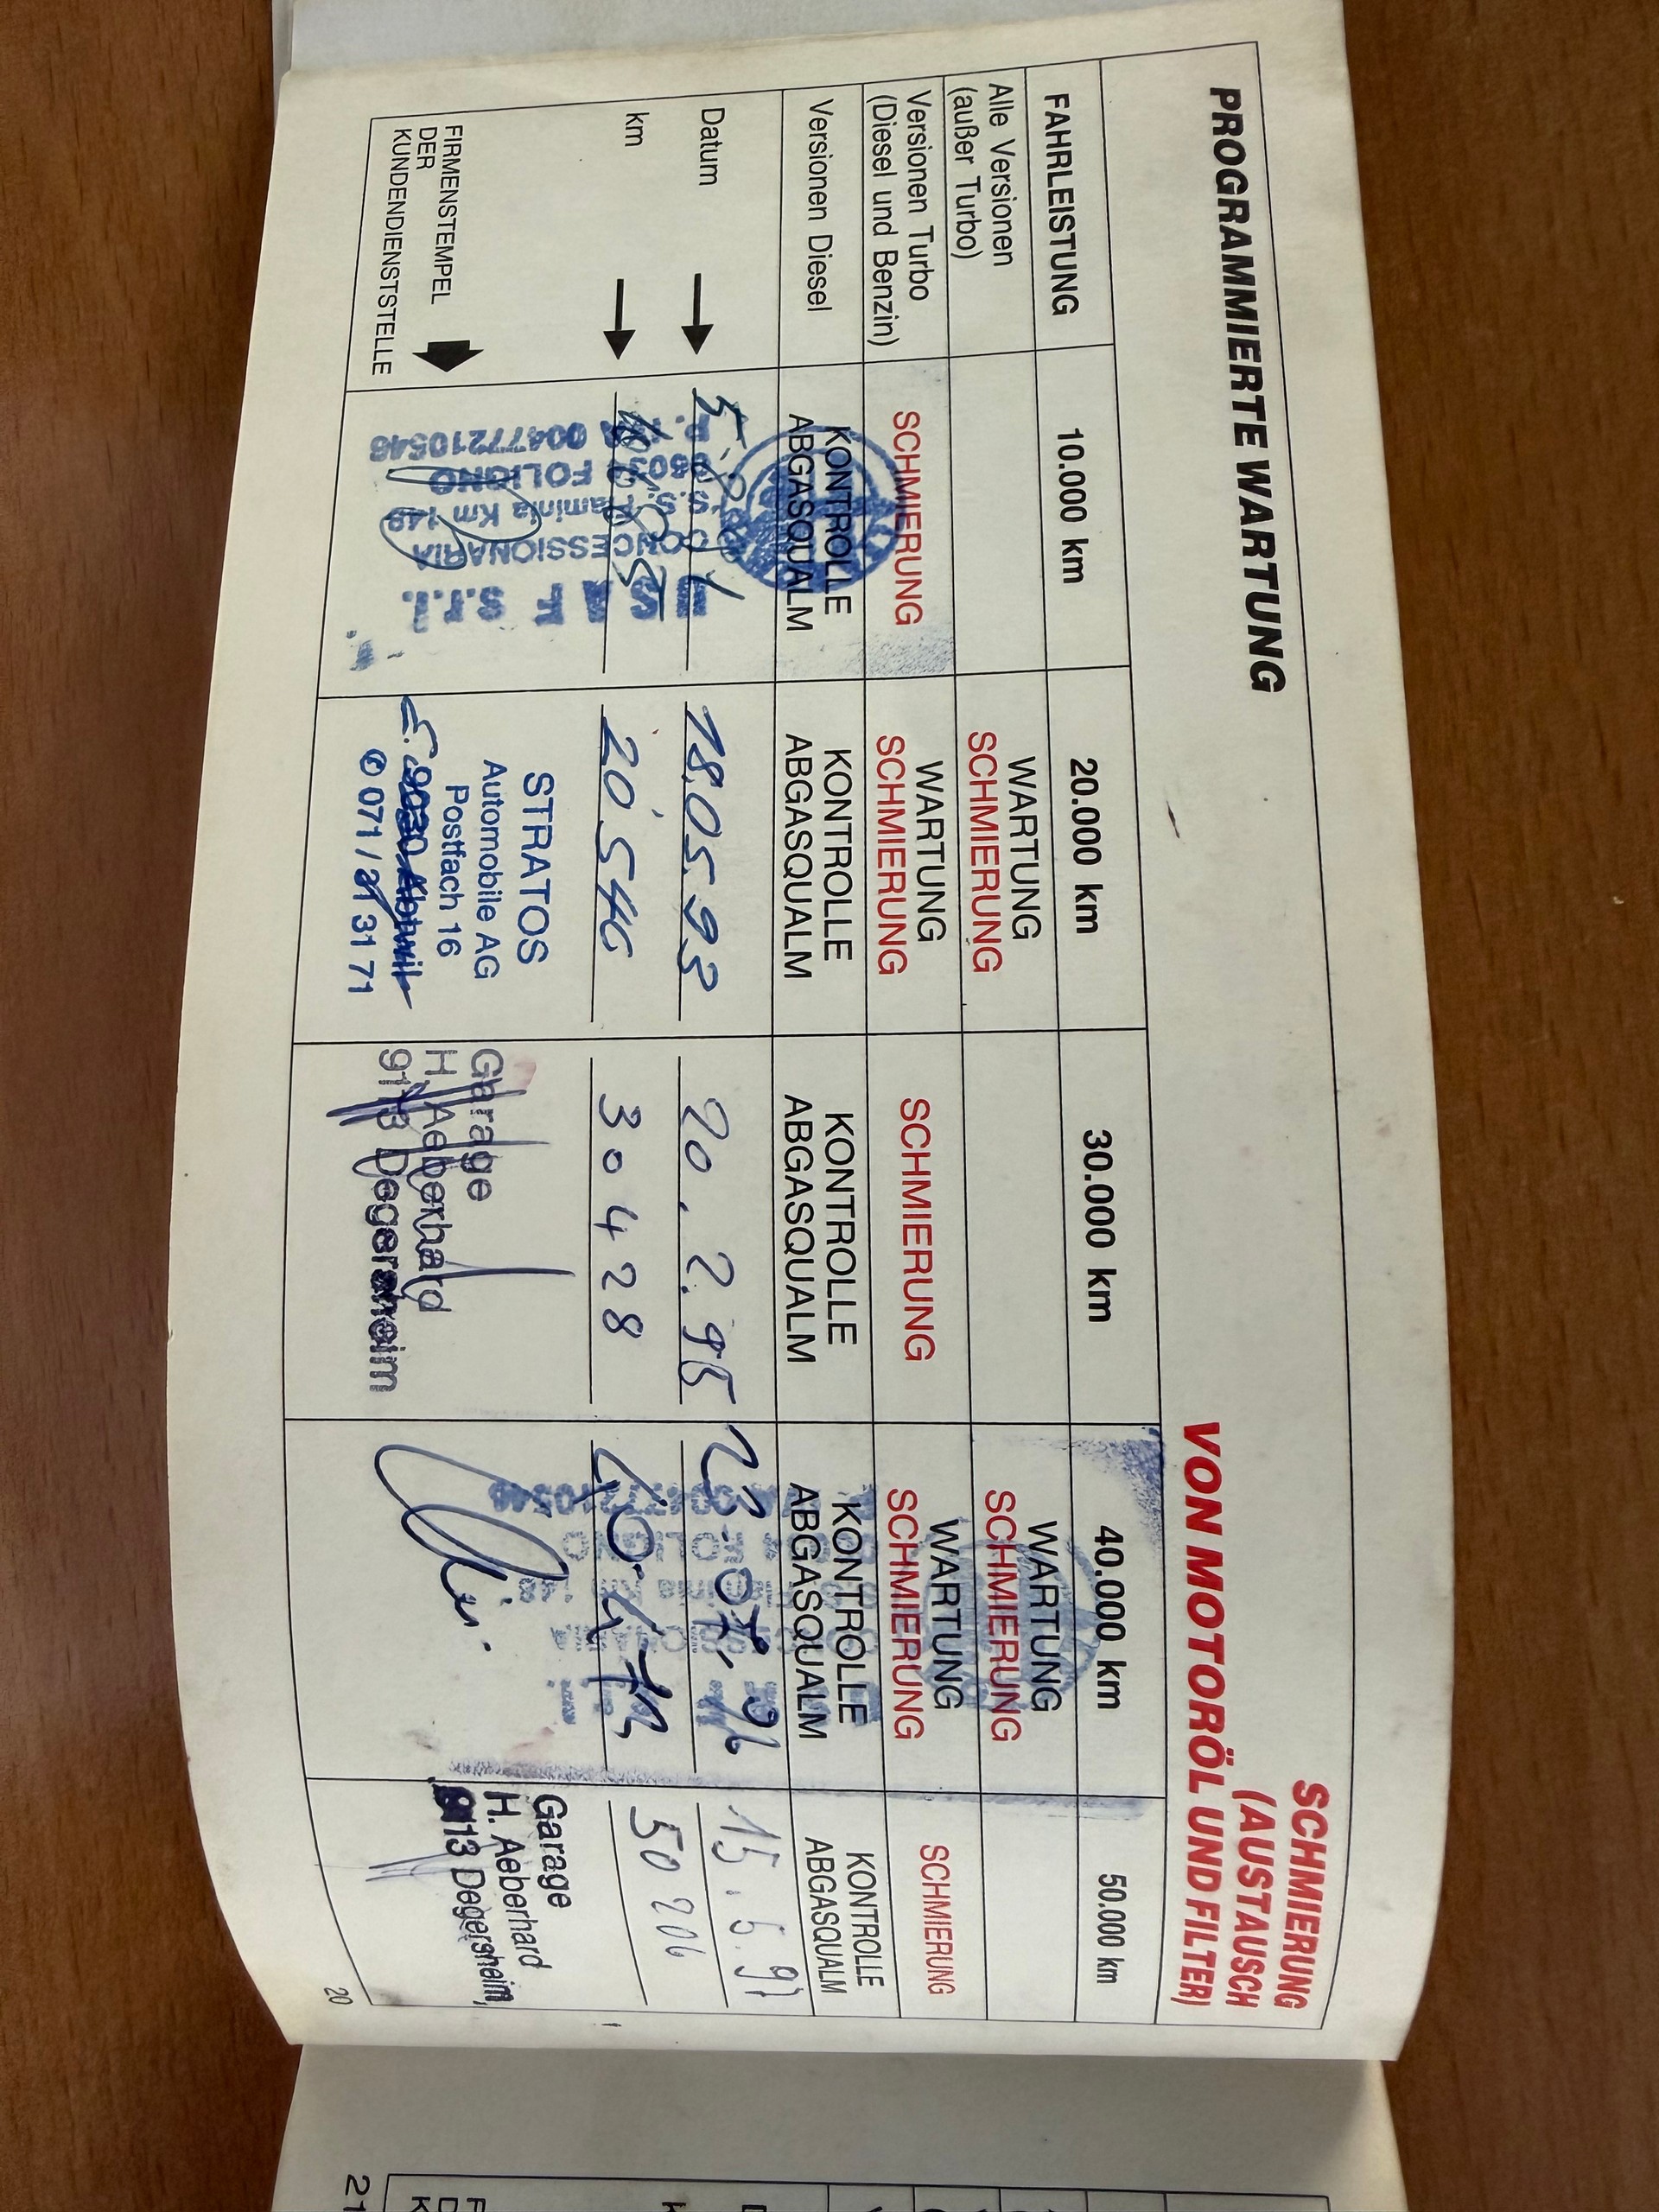 PROGRAMMIERTE WARTUNG
SCHMIERUNG
(AUSTAUSCH
VON MOTORÖL UND FILTER)
FAHRLEISTUNG
10.000 km
20.000 km
30.000 km
40.000 km
50.000 km
Alle Versionen
(außer Turbo)
WARTUNG
SCHMIERUNG
WARTUNG
SCHMIERUNG
Versionen Turbo
(Diesel und Benzin)
SCHMIERUNG
WARTUNG
SCHMIERUNG
SCHMIERUNG
WARTUNG
SCHMIERUNG
SCHMIERUNG
Versionen Diesel
KONTROLLE
ABGASQUALM
KONTROLLE
ABGASQUALM
KONTROLLE
ABGASQUALM
KONTROLLE
ABGASQUALM
KONTROLLE
ABGASQUALM
Datum
18.05.93
20.2.95
15.5.97
km
20'546
30428
50206
FIRMENSTEMPEL
DER
KUNDENDIENSTSTELLE
S.r.l.
CONCESSIONARIA
S.S. Flaminia Km 149
FOLIGNO
00477210546
STRATOS
Automobile AG
Postfach 16
9030 Abtwil
071 / 31 31 71
Garage
H. Aeberhard
9113 Degersheim
Garage
H. Aeberhard
9113 Degersheim
20
21